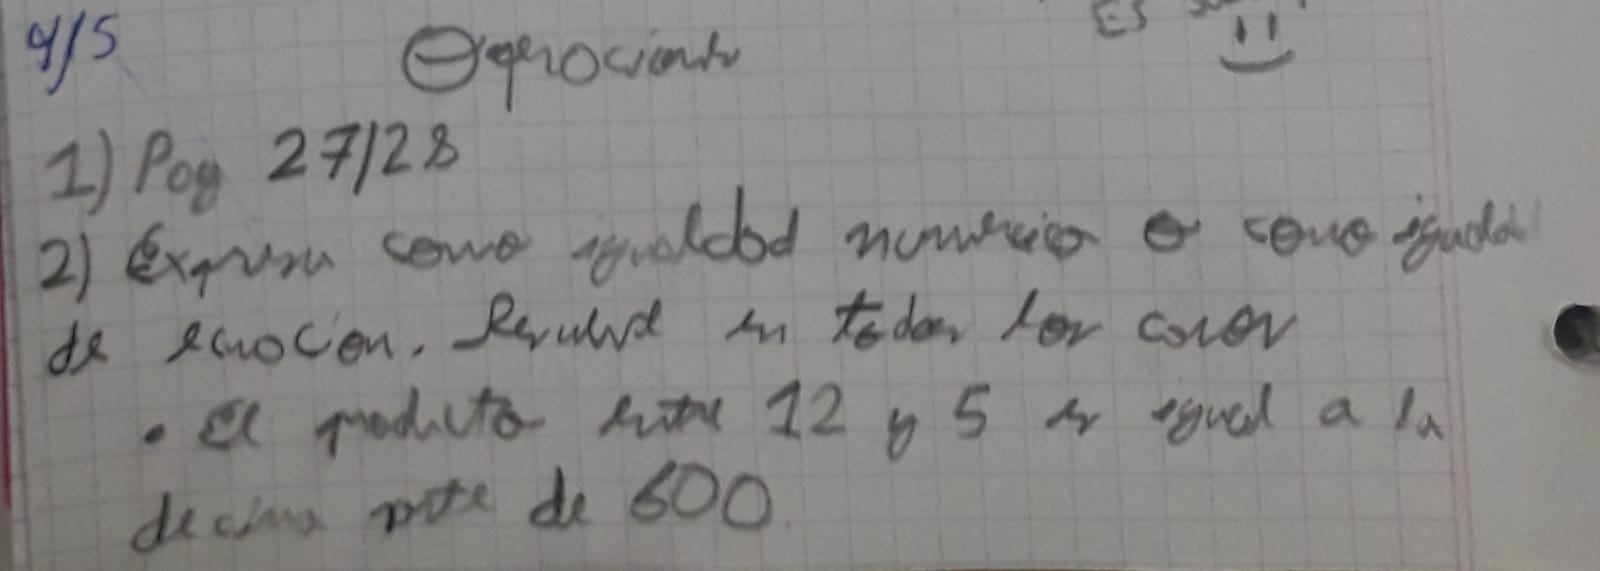 4/5
Operaciones
1) Pag 27/28
2) Expresa como igualdad numerica o como igualdad
de ecuacion. Resolvé en todos los casos
• El producto entre 12 y 5 es igual a la
decima parte de 600